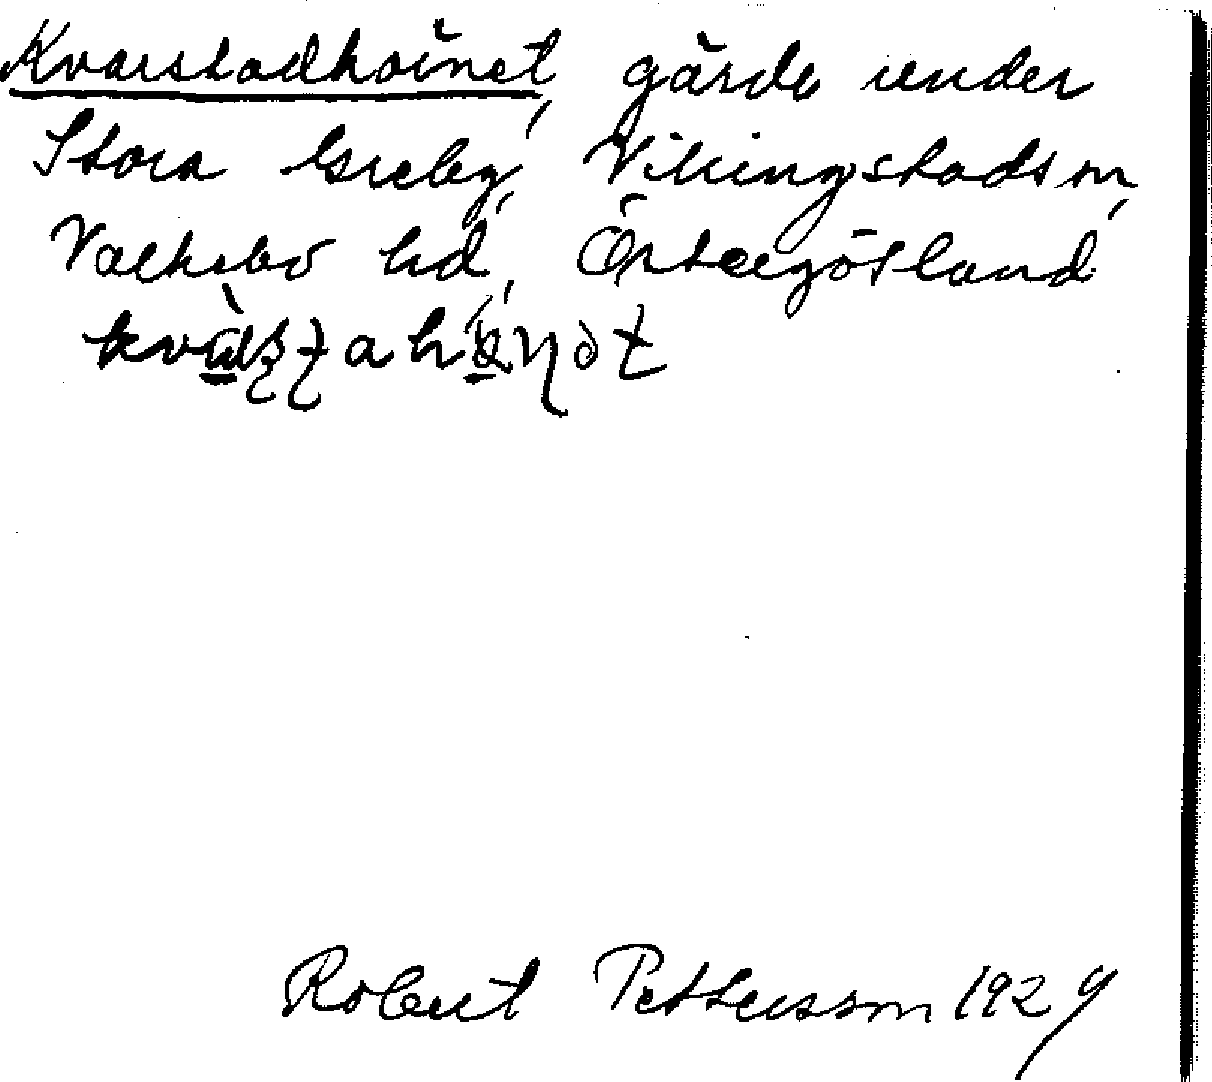 Kvarstadhörnet, gärde under
Stora Greby, Vikingstads sn,
Valkebo hd, Östergötland
Robert Pettersson 1929